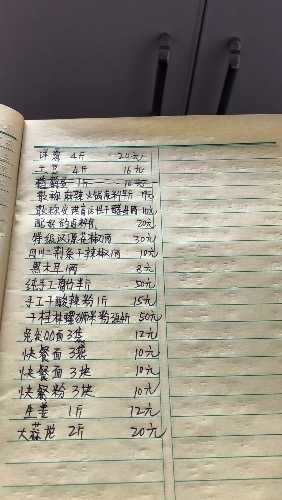 洋葱 4斤 20元
土豆 4斤 16元
1斤 10元
散称 麻辣火锅底料半斤 17元
散称 10元
配好的卤料包 20元
特级汉源花椒1两 30元
四川二荆条干辣椒1两 10元
黑木耳1两 8元
纯手工腐竹半斤 50元
手工干酸辣粉1斤 15元
干桂林螺蛳米粉3.5斤 50元
免煮QQ面3袋 12元
快餐面3袋 10元
快餐面3块 10元
快餐粉3块 10元
生姜 1斤 12元
大蒜 2斤 20元